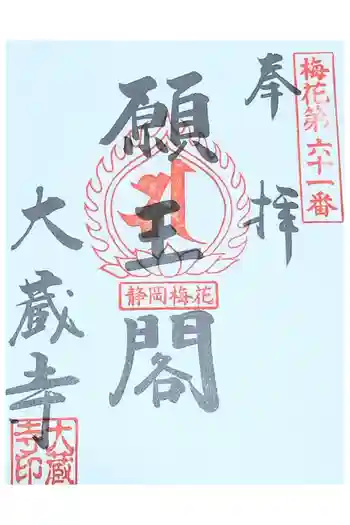 梅花第六十一番
奉拝
願王閣
静岡梅花
大蔵寺
大蔵寺印